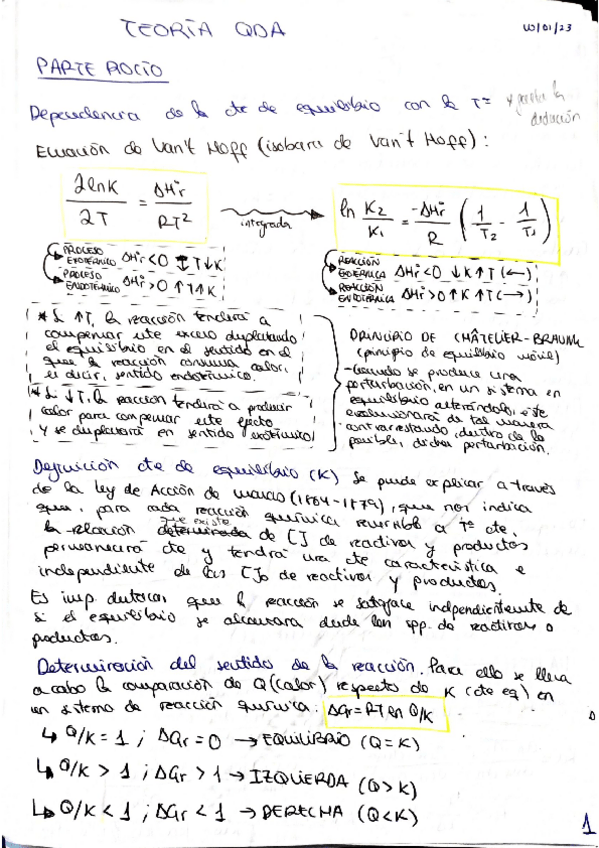 TEORÍA QDA
10/01/23
PARTE ROCÍO
Dependencia de la cte de equilibrio con la Tª
Ecuación de Van't Hoff (isobara de Van't Hoff):
∂lnK / ∂T = ΔHr° / RT²
integrada
ln K₂/K₁ = -ΔHr°/R (1/T₂ - 1/T₁)
PROCESO EXOTÉRMICO ΔHr°<0 ↑T↓K
PROCESO ENDOTÉRMICO ΔHr°>0 ↑T↑K
REACCIÓN EXOTÉRMICA ΔHr°<0 ↓K↑T (←)
REACCIÓN ENDOTÉRMICA ΔHr°>0 ↑K↑T (→)
* Si ↑T, la reacción tenderá a
compensar este exceso desplazando
el equilibrio en el sentido en el
que la reacción consuma calor,
es decir, sentido endotérmico.
* Si ↓T, la reacción tenderá a producir
calor para compensar este efecto
y se desplazará en sentido exotérmico
PRINCIPIO DE CHÂTELIER-BRAUNE
(principio de equilibrio móvil)
-Cuando se produce una
perturbación, en un sistema en
equilibrio alterándolo, este
evolucionará de tal manera
contrarrestando, dentro de lo
posible, dicha perturbación.
Definición cte de equilibrio (K) Se puede explicar a través
de la Ley de Acción de masas (1864-1879), que nos indica
que, para cada reacción química reversible a Tª cte,
la relación que existe de [] de reactivos y productos
permanecerá cte y tendrá una cte característica e
independiente de las []₀ de reactivos y productos.
Es imp. destacar que la reacción se satisface independientemente de
si el equilibrio se alcanzara desde las spp. de reactivos o
productos.
Determinación del sentido de la reacción. Para ello se lleva
a cabo la comparación de Q (calor) respecto de K (cte eq) en
un sistema de reacción química. ΔGr = RT ln Q/K
↳ Q/K = 1 ; ΔGr = 0 → EQUILIBRIO (Q = K)
↳ Q/K > 1 ; ΔGr > 1 → IZQUIERDA (Q>K)
↳ Q/K < 1 ; ΔGr < 1 → DERECHA (Q<K)
1